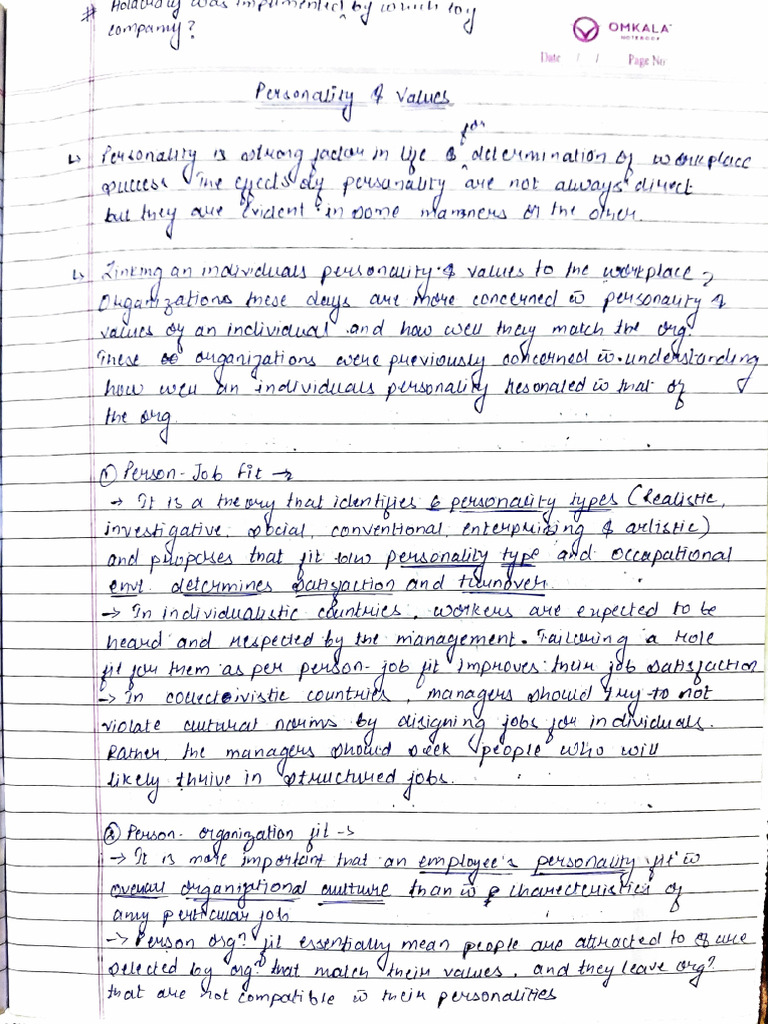 # Holacracy was implimented by which log
company?
OMKALA
NOTEBOOK
Date / / Page No
Personality & values
↳ Personality is strong factor in life & for determination of workplace
success. The effects of personality are not always direct
but they are evident in some manners or the other.
↳ Linking an individuals personality & values to the workplace →
Organizations these days are more concerned w personality &
values of an individual and how well they match the org.
These organizations were previously concerned w understanding
how well an individuals personality resonated w that of
the org.
① Person-Job fit →
→ It is a theory that identifies 6 personality types (Realistic,
investigative, social, conventional, enterprising & artistic)
and proposes that fit b/w personality type and occupational
envt. determines satisfaction and turnover.
→ In individualistic countries, workers are expected to be
heard and respected by the management. Tailouring a role
fit for them as per person-job fit improves their job satisfaction
→ In collectivistic countries, managers should try to not
violate cultural norms by disigning jobs for individuals.
Rather, the managers should seek people who will
likely thrive in structured jobs.
② Person-organization fit →
→ It is more important that an employee's personality fit w
overall organizational culture than w characteristics of
any perticular job
→ Person orgn fit essentially mean people are attracted to & are
selected by orgn that match their values, and they leave orgn
that are not compatible w their personalities